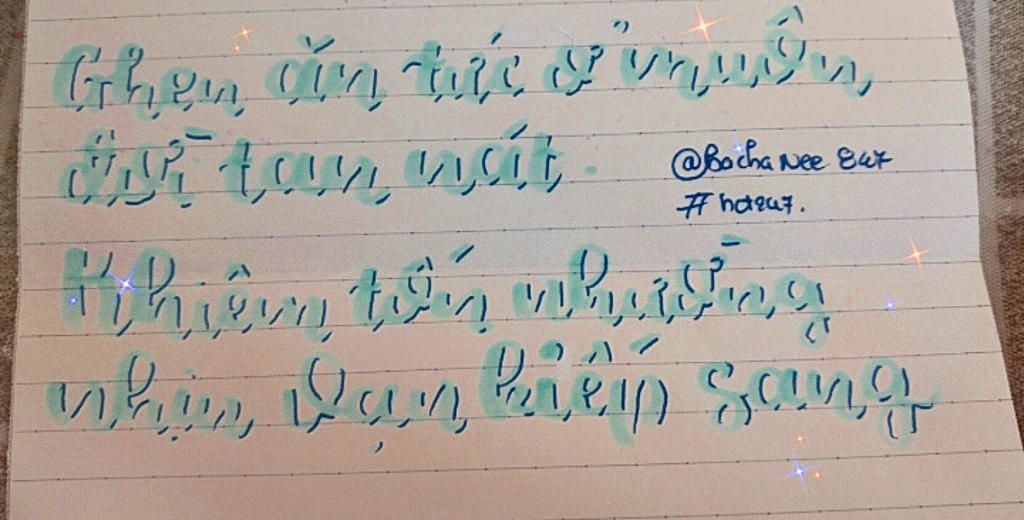 Ghen ăn tức ở muôn
đời tan nát.
@BachaNee
Khiêm tốn nhường
nhịn vạn kiếp sang